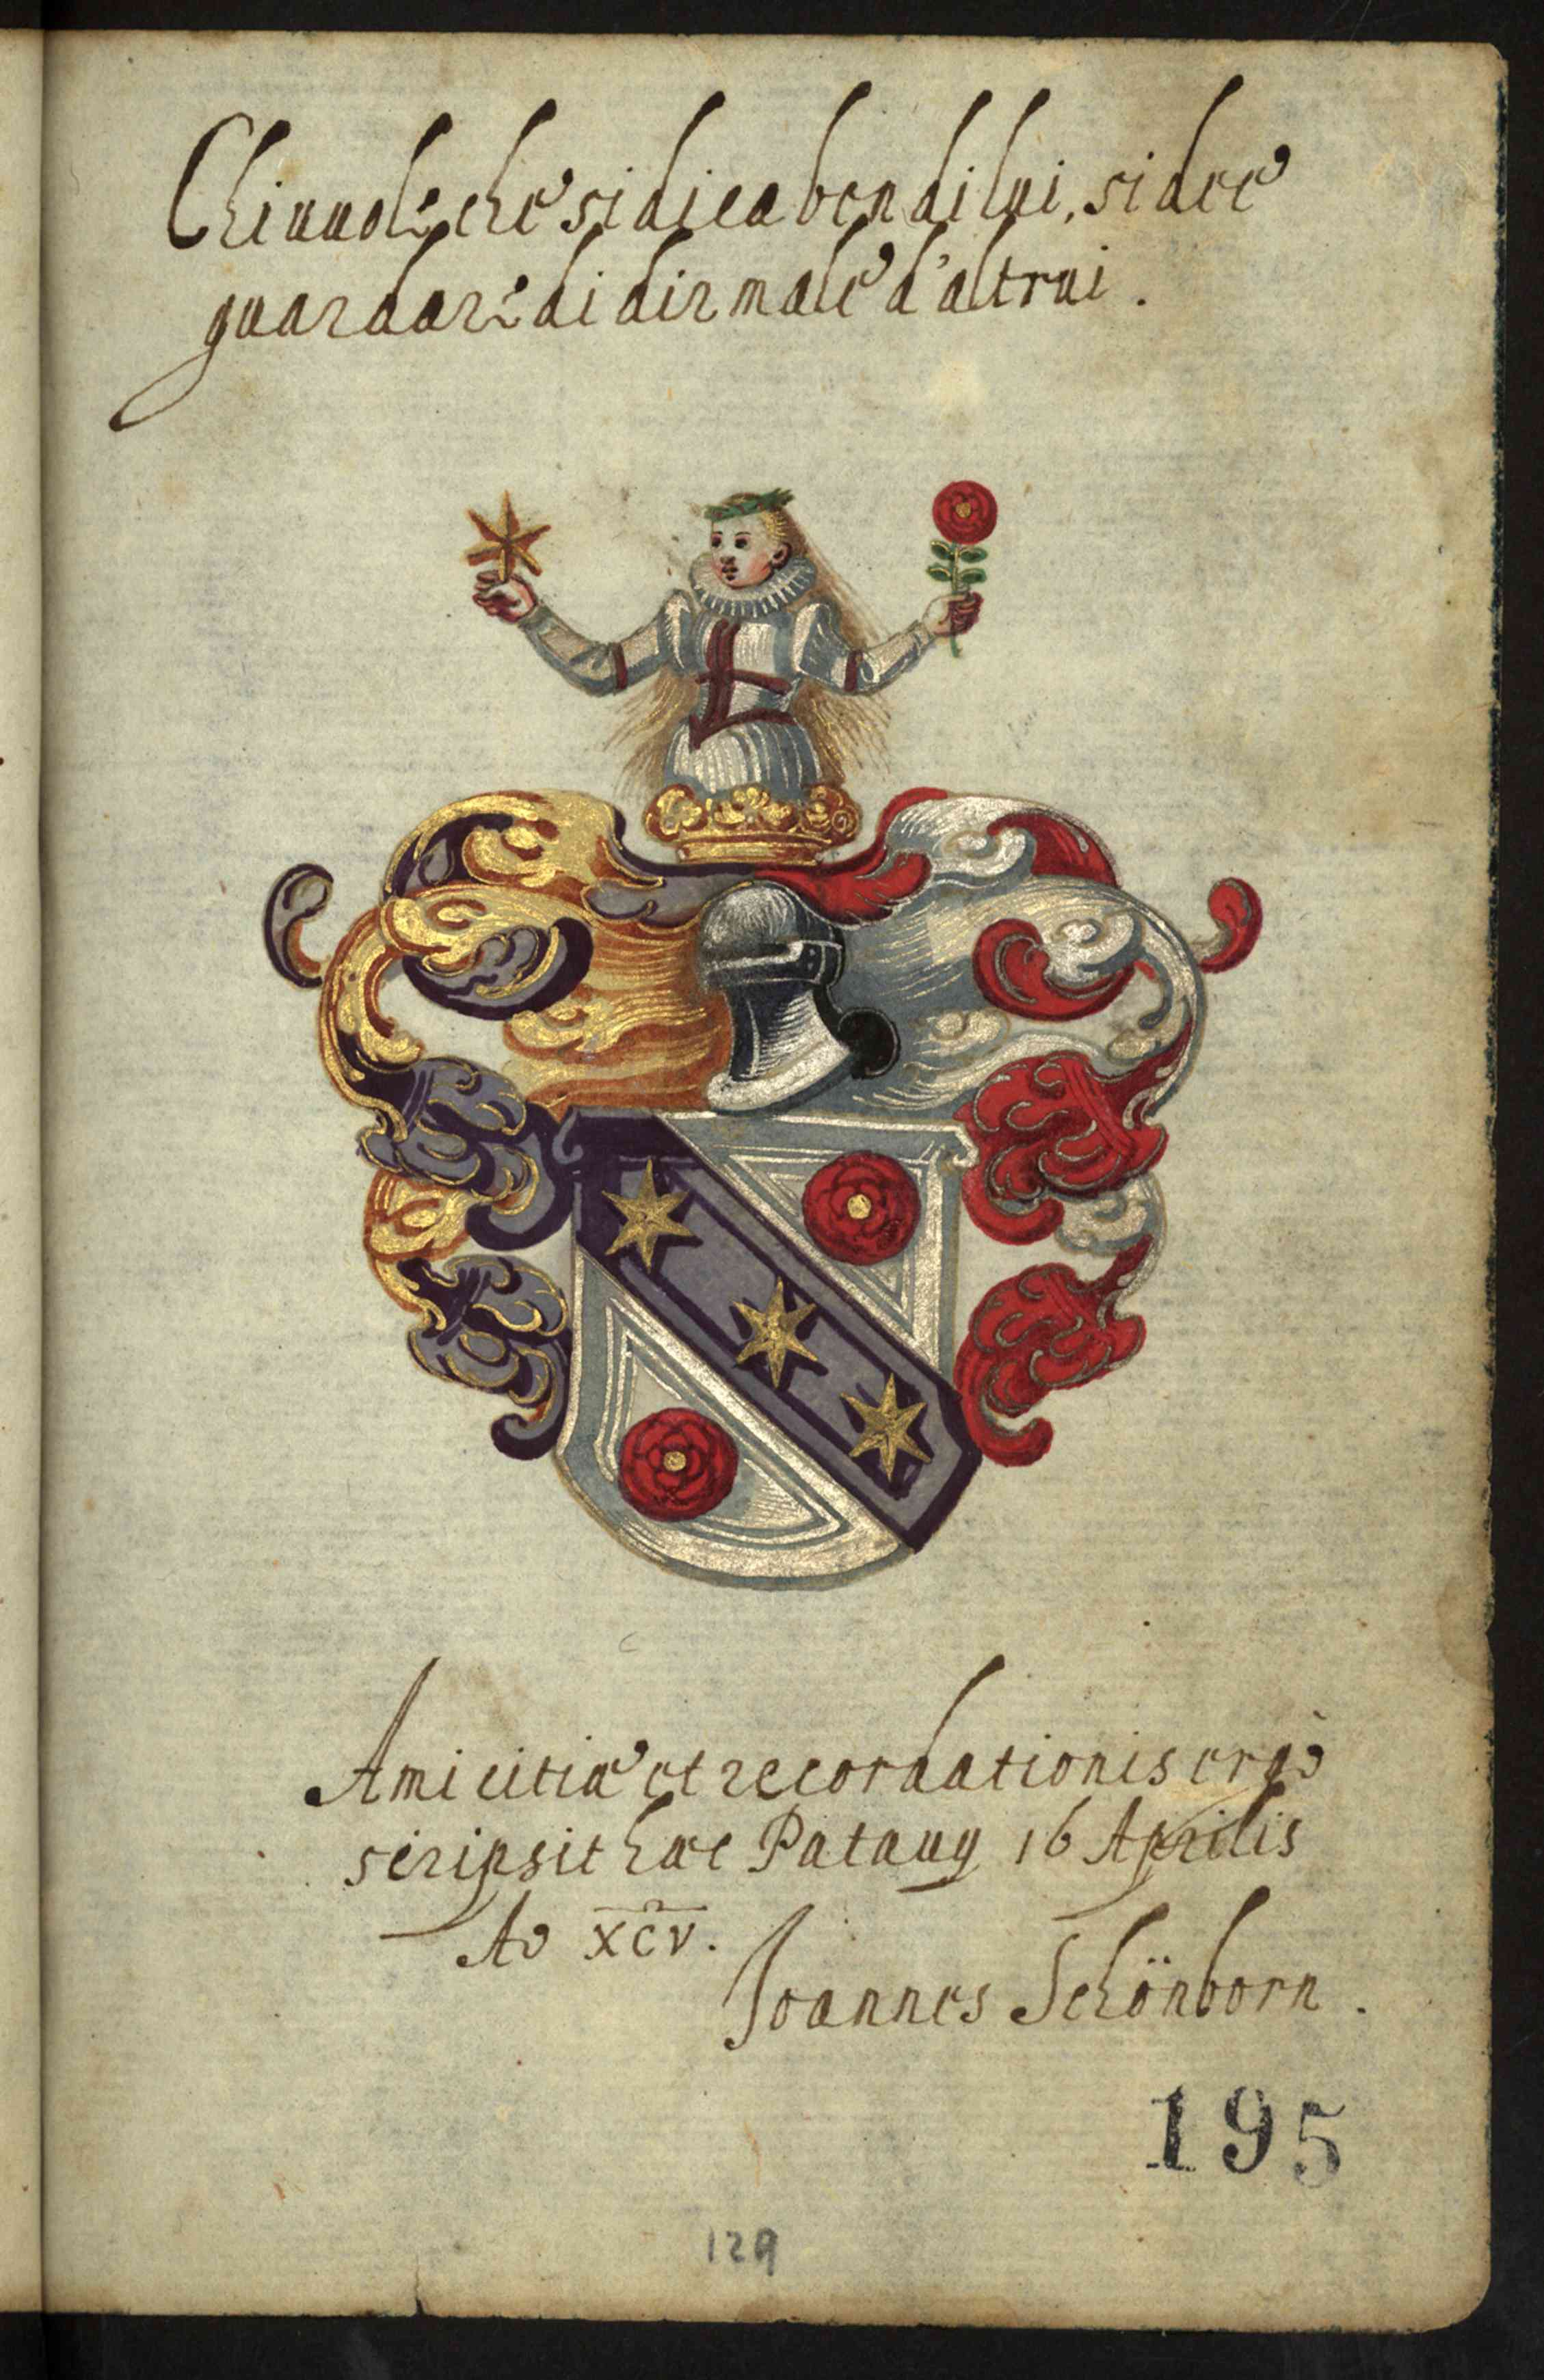 Chi uuole che si dica ben di lui, si dee
guardare di dir male d'altrui.
Amicitiæ et recordationis ergò
scripsit hæc Patauÿ 16 Aprilis
Ao XCV.
Joannes Schönborn.
195
129